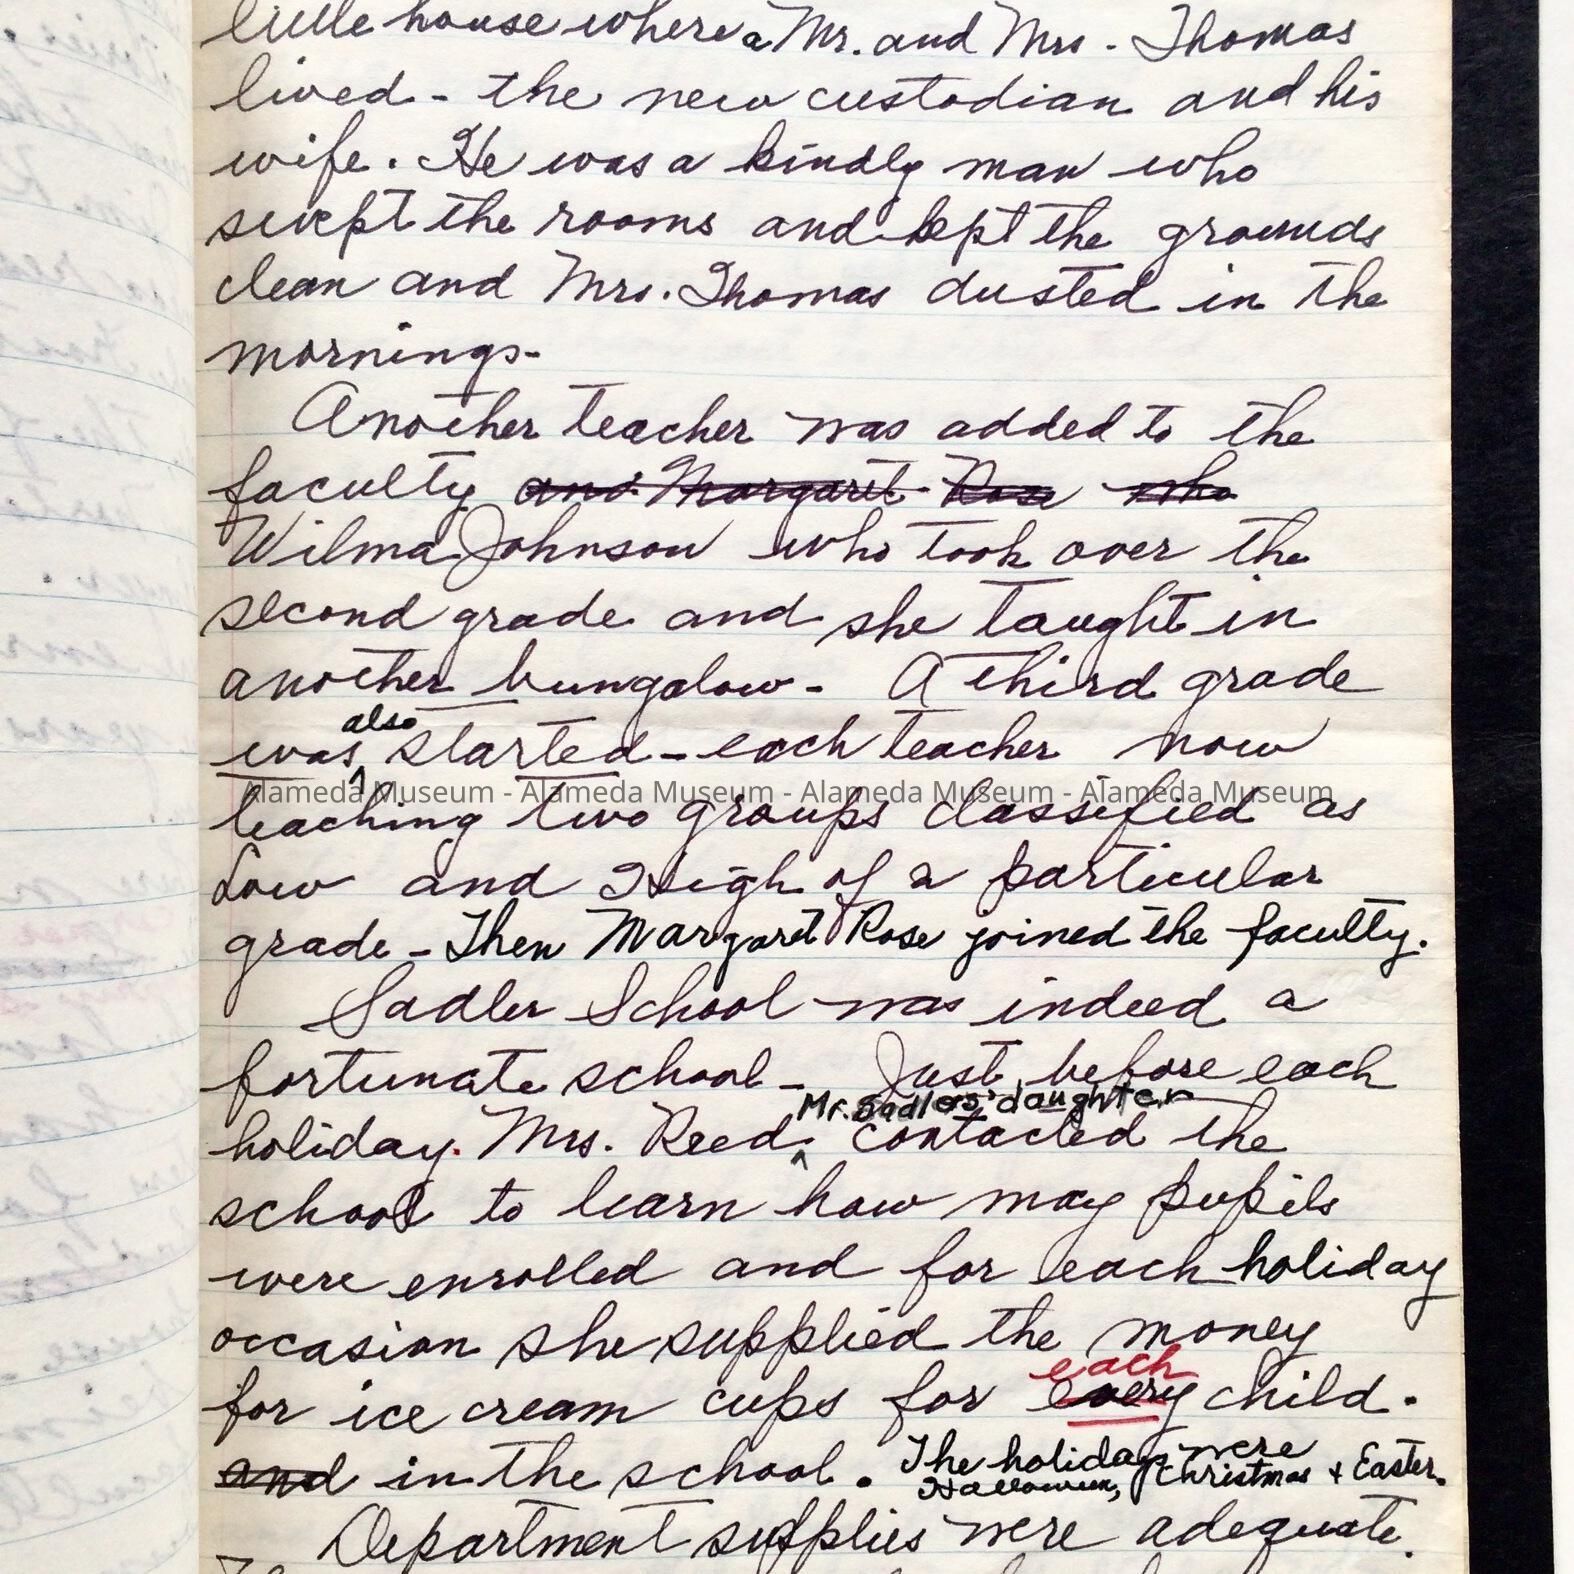 little house where a Mr. and Mrs. Thomas
lived - the new custodian and his
wife. He was a kindly man who
swept the rooms and kept the grounds
clean and Mrs. Thomas dusted in the
mornings-
Another teacher was added to the
faculty and Margaret Rose who
Wilma Johnson who took over the
second grade and she taught in
another bungalow- A third grade
also
was started - each teacher now
Alameda Museum - Alameda Museum - Alameda Museum - Alameda Museum
teaching two groups classified as
Low and High of a particular
grade - Then Margaret Rose joined the faculty.
Sadler School was indeed a
fortunate school - Just before each
Mr. Sadlers' daughter
holiday. Mrs. Reed contacted the
school to learn how may pupils
were enrolled and for each holiday
occasion she supplied the money
each
for ice cream cups for every child.
and in the school. The holidays were
Halloween, Christmas + Easter.
Department supplies were adequate.